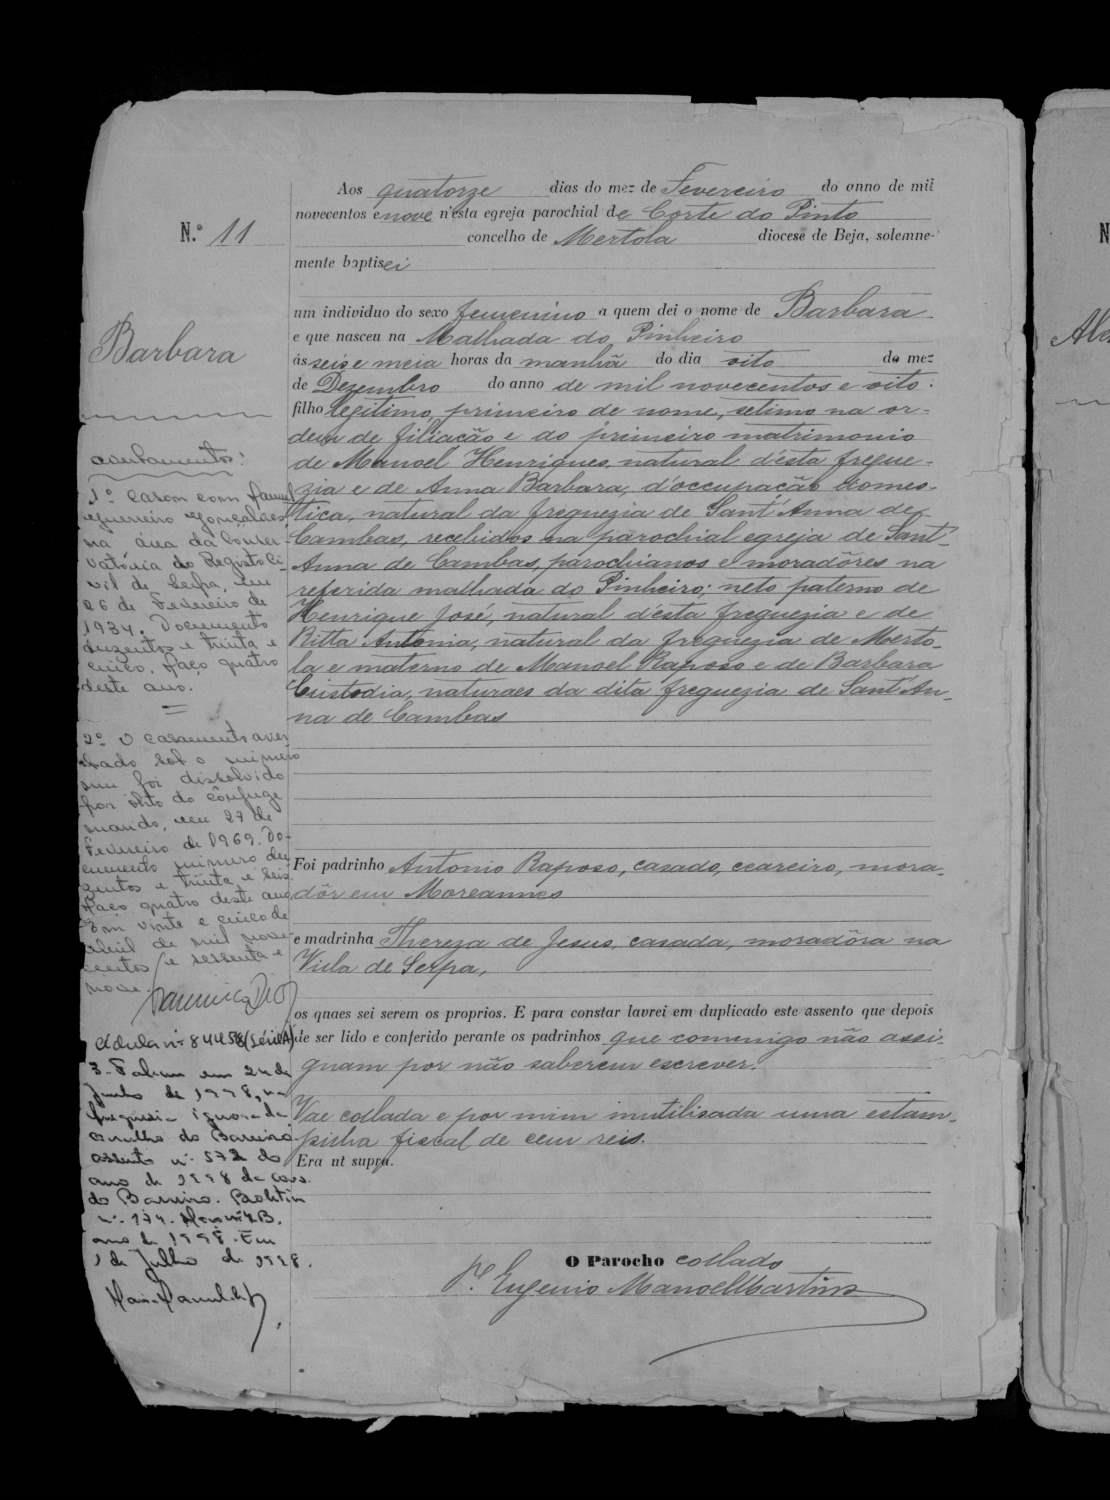 Aos quatorze dias do mez de Fevereiro do anno de mil
novecentos e nove n'esta egreja parochial de Corte do Pinto
concelho de Mertola diocese de Beja, solemne-
mente baptisei
um individuo do sexo femenino a quem dei o nome de Barbara
e que nasceu na Malhada do Pinheiro
ás seis e meia horas da manhã do dia oito do mez
de Dezembro do anno de mil novecentos e oito.
filho legitimo, primeiro de nome, setimo na or-
dem de filiação e do primeiro matrimonio
de Manoel Henriques, natural d'ésta fregue-
zia e de Anna Barbara, d'occupação domes-
tica, natural da freguezia de Sant'Anna de
Cambas, recebidos na parochial egreja de Sant'
Anna de Cambas, parochianos e moradôres na
referida malhada do Pinheiro; neto paterno de
Henrique José, natural d'ésta freguezia e de
Ritta Antonia, natural da freguezia de Merto-
la e materno de Manoel Raposo e de Barbara
Custodia, naturaes da dita freguezia de Sant'An-
na de Cambas
Foi padrinho Antonio Raposo, casado, ceareiro, mora-
dôr em Moreannes
e madrinha Thereza de Jesus, casada, moradôra na
Villa de Serpa,
os quaes sei serem os proprios. E para constar lavrei em duplicado este assento que depois
de ser lido e conferido perante os padrinhos que comemigo não assi-
gnam por não saberem escrever.
Vae collada e por mim inutilisada uma estam-
pilha fiscal de cem reis.
Era ut supra.
O Parocho collado
P.e Eugenio Manoel Martins
N.º 11
Barbara
averbamentos:
1º Casou com Manuel
Guerreiro Gonçalves,
na área da Conser-
vatória do Registo Ci-
vil de Serpa, em
26 de Fevereiro de
1934. Documento
duzentos e trinta e
cinco, maço quatro
deste ano.
=
2º O casamento aver-
bado sob o número
um foi dissolvido
por óbito do cônjuge
marido, em 27 de
Fevereiro de 1969. Do-
cumento número du-
zentos e trinta e seis
Maço quatro deste ano
Em vinte e cinco de
Abril de mil nove-
centos e sessenta e
nove.
Cédula nº 84458 (série A)
3- Faleceu em 24 de
Junho de 1998, na
freguesia ignorada
concelho do Barreiro
assento nº 572 do
ano de 1998 da Cons.
do Barreiro. Boletim
nº 174. Maço nº 2B.
ano de 1998. Em
1 de Julho de 1998.
N